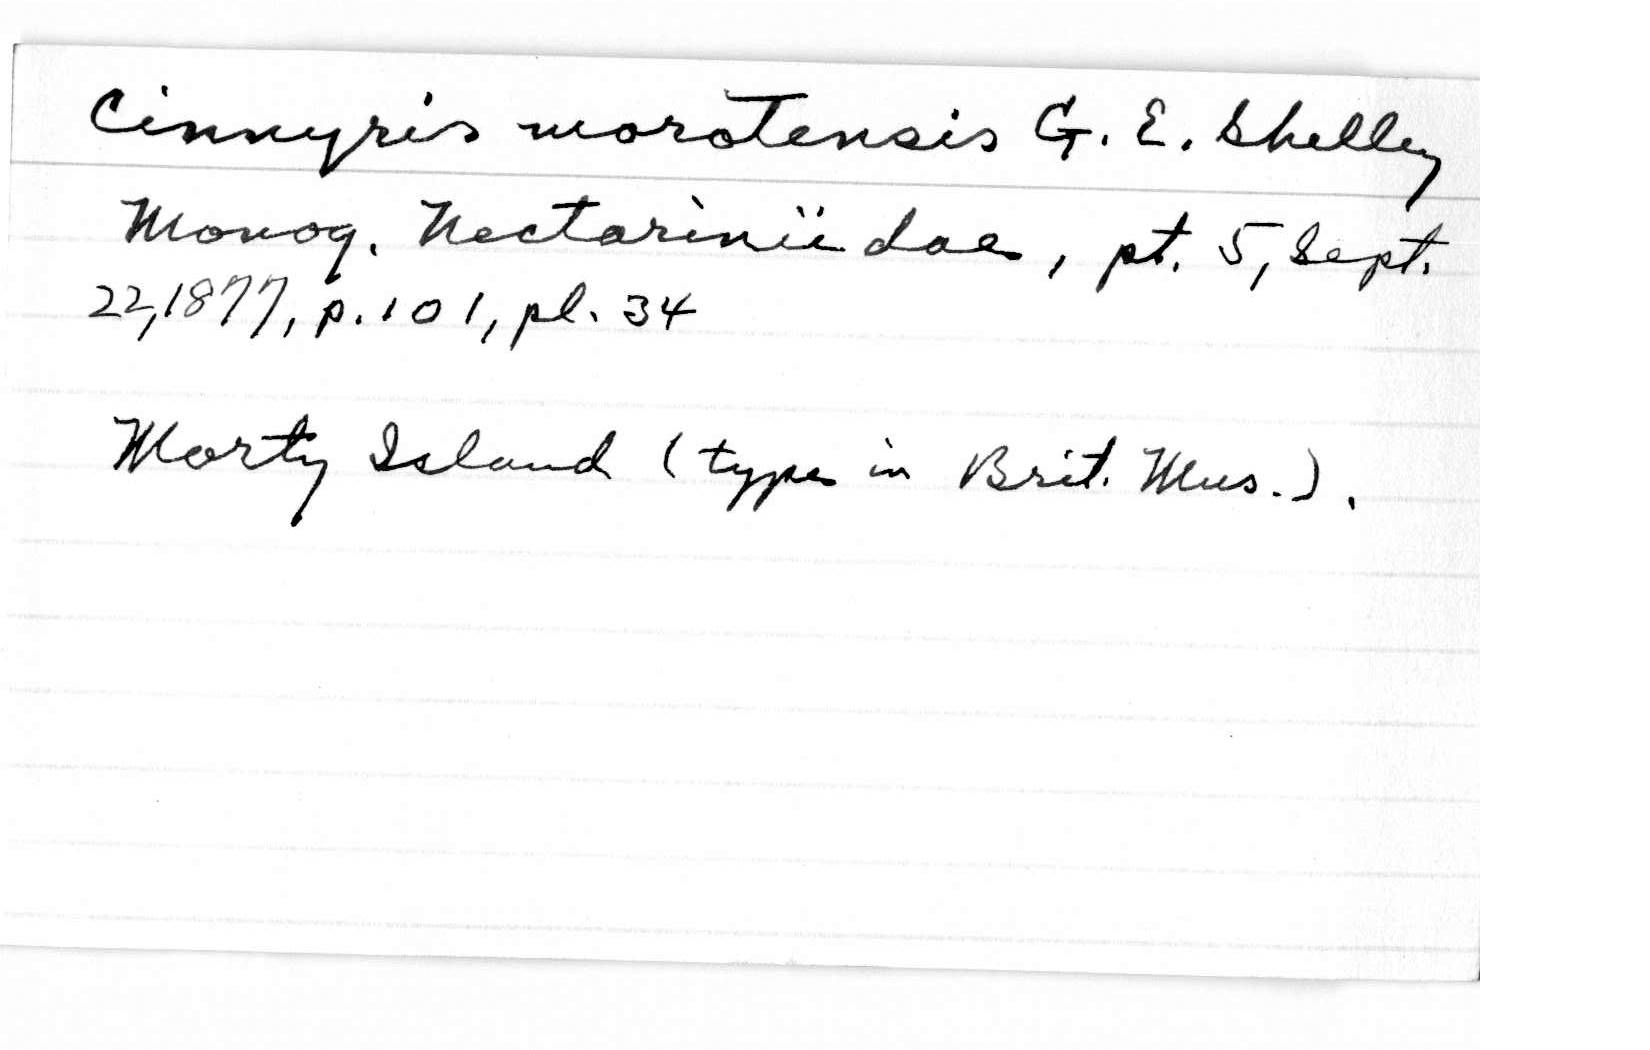 Cinnyris morotensis G. E. Shelley
Monog. Nectariniidae, pt. 5, Sept.
22, 1877, p. 101, pl. 34
Morty Island (type in Brit. Mus.).